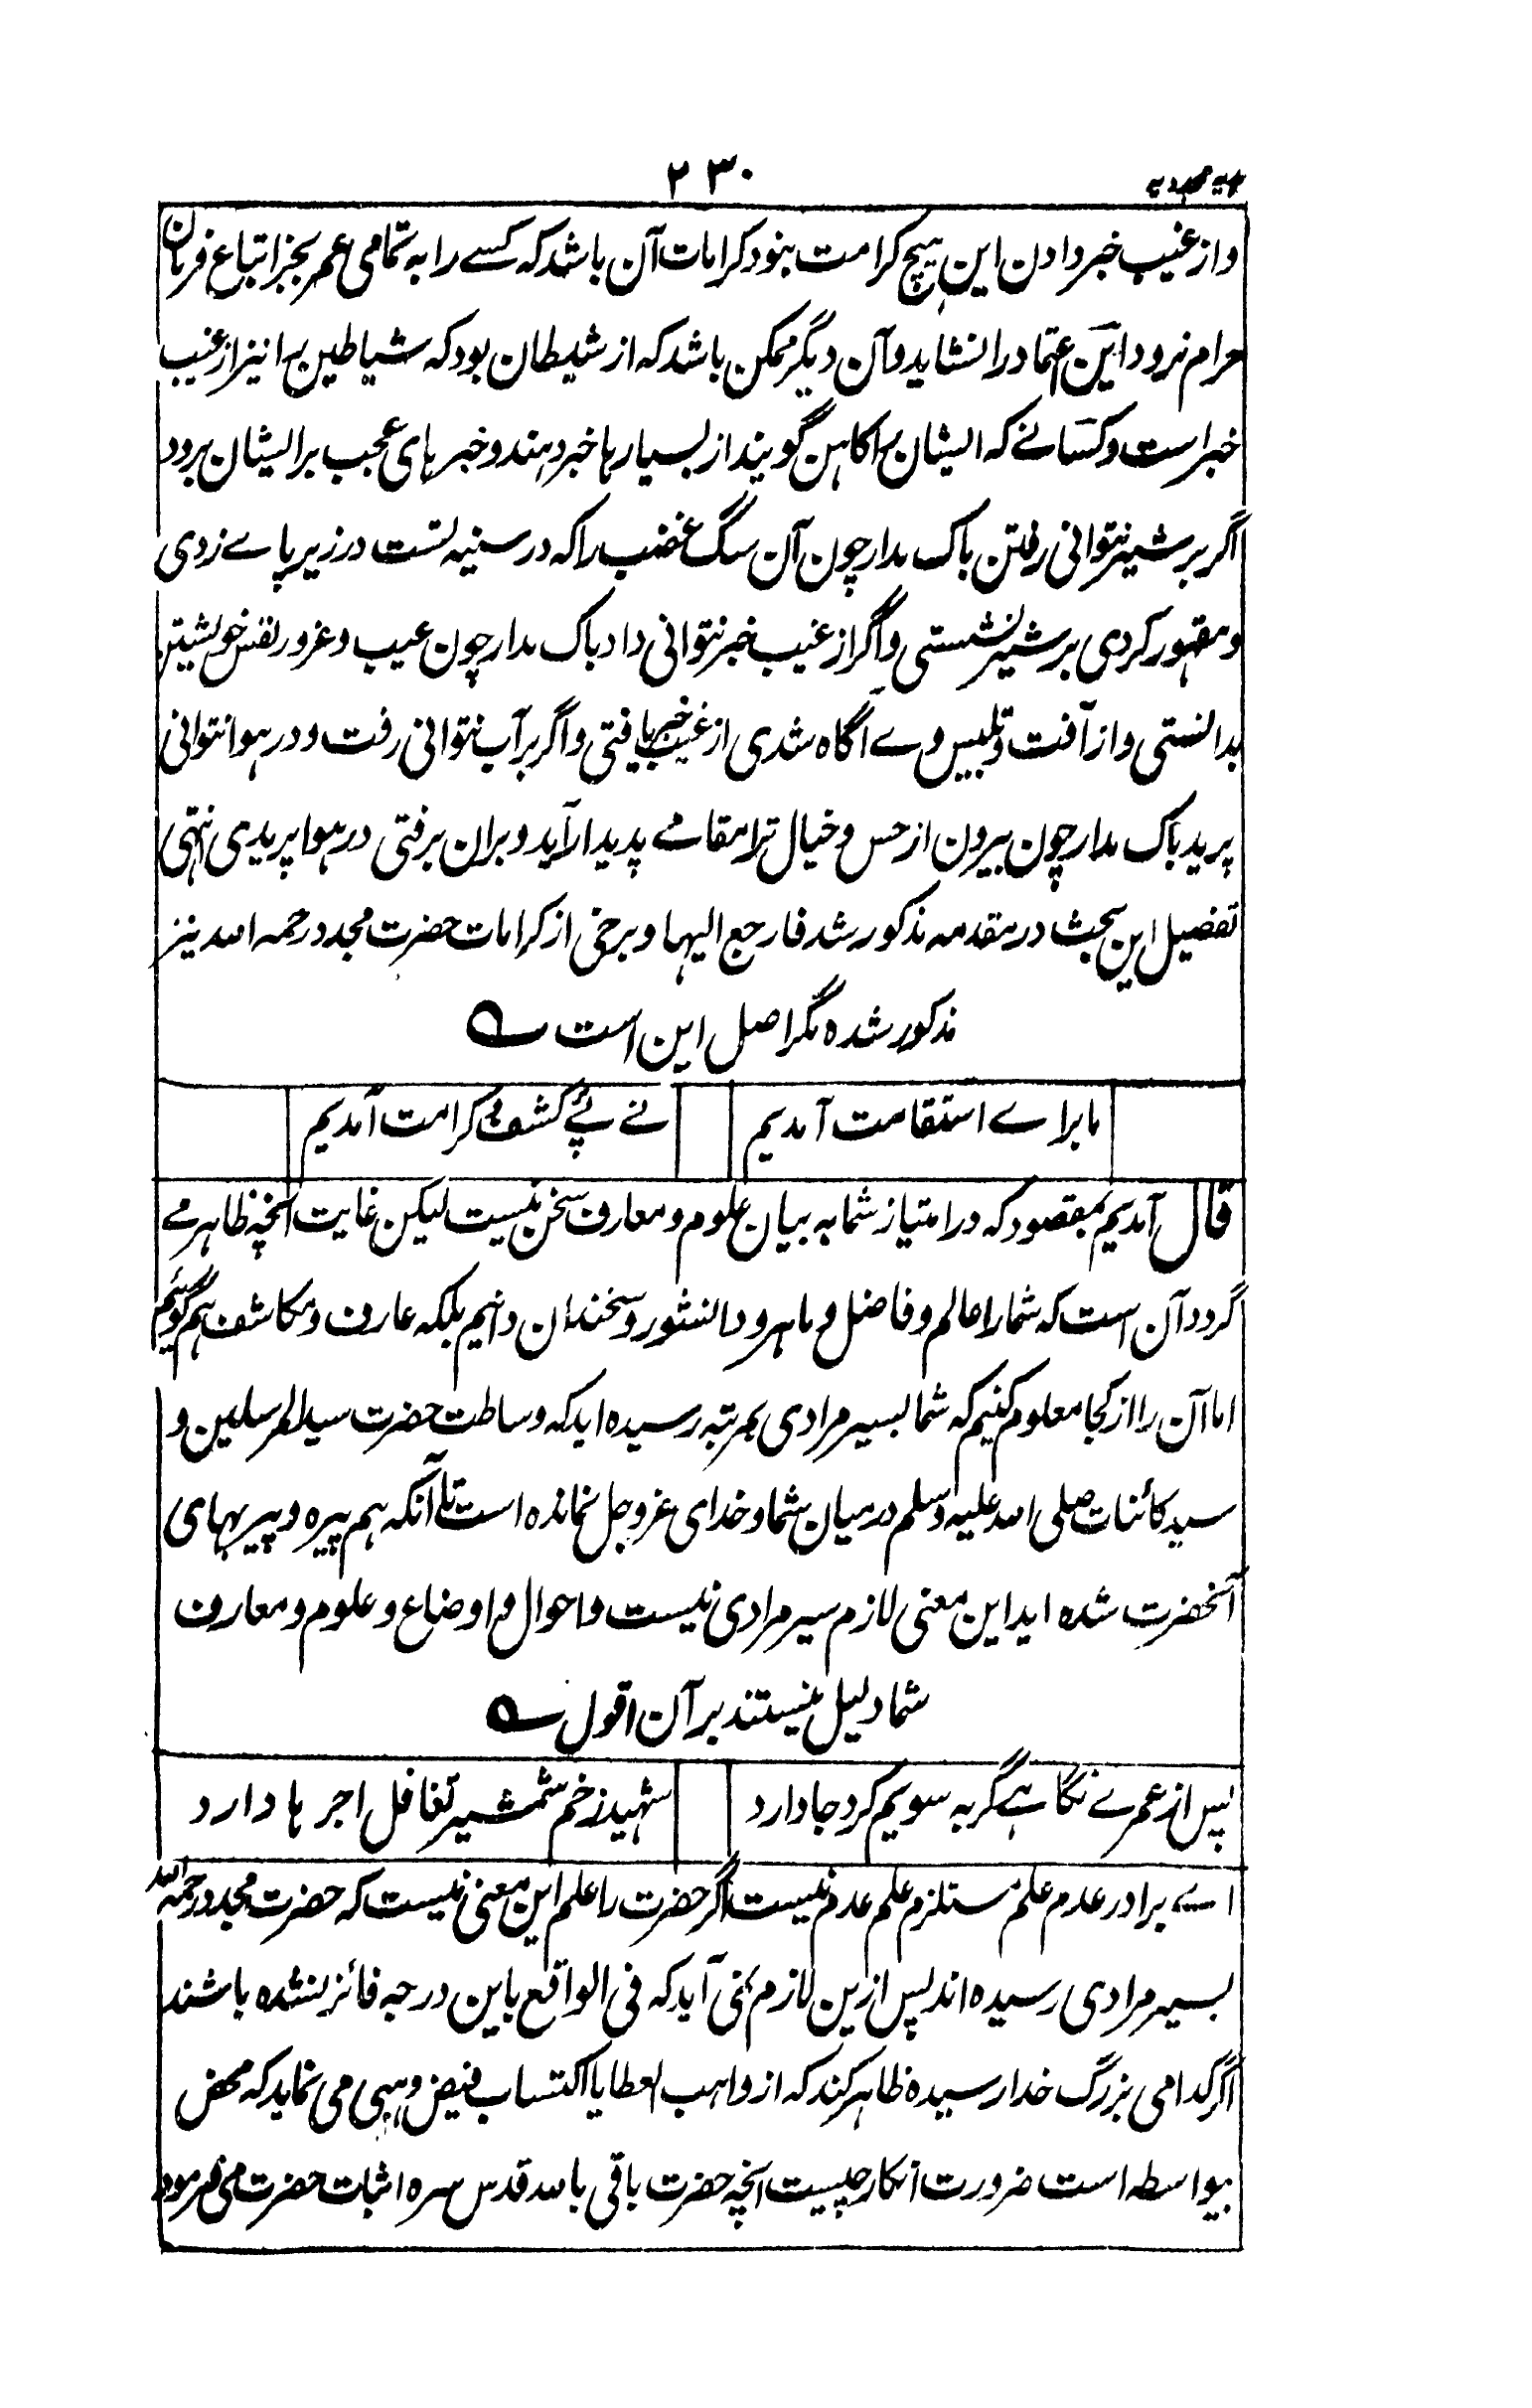 هدیه مجددیه
۲۳۰
واز غیب خبر دادن این ہیچ کرامت بنود کرامات آن باشد کہ کسے را بہ تمامی عمر بجز اتباع فرمان
مرام نرود این اعتماد را نشاید وآن دیگر ممکن باشد کہ از شیطان بود کہ شیاطین را نیز از غیب
خبر است وکسانے کہ ایشان را کاہن گویند از بسیار ہا خبر دہند وخبر ہای عجب بر ایشان برود
اگر بر شیر نتوانی رفتن باک مدار چون آن سگ غضب را کہ در سینہ تست در زیر پاے زدی
ومقہور کردی بر شیر نشستی واگر از غیب خبر نتوانی داد باک مدار چون عیب وغرور نفس خویشتن
بدانستی واز آفت وتلبیس وے آگاہ شدی از غیب خبر یافتی واگر بر آب نتوانی رفت ودر ہوا نتوانی
پرید باک مدار چون بیرون از حس وخیال ترا مقامے پدیدار آید وبران برفتی در ہوا پریدی انتہی
تفصیل این بحث در مقدمہ مذکور شد فارجع الیہا وبرخی از کرامات حضرت مجدد رحمہ اللہ نیز
مذکور شدہ مگر اصل این است ؎
ما برا ے استقامت آمدیم
نے پۓ کشف و کرامت آمدیم
قال آمدیم بمقصود کہ در امتیاز شما بہ بیان علوم ومعارف سخن نیست لیکن غایت انچہ ظاہر مے
گردد آن است کہ شما را عالم وفاضل وماہر ودانشور وسخندان دانیم بلکہ عارف ومکاشف ہم گوئیم
اما آن را از کجا معلوم کنیم کہ شما بسیر مرادی بمرتبہ رسیدہ اید کہ وساطت حضرت سید المرسلین و
سید کائنات صلی اللہ علیہ وسلم درمیان شما وخدای عزوجل نماندہ است تا آنکہ ہم پیرہ وپیربہای
آنحضرت شدہ اید این معنی لازم سیر مرادی نیست واحوال واوضاع وعلوم ومعارف
شما دلیل نیستند بر آن اقول ؎
پس از عمرے نگاہے گر بہ سویم کرد جا دارد
شہید زخم شمشیر تغافل اجر ہا دارد
اے برادر عدم علم مستلزم علم عدم نیست اگر حضرت را علم این معنی نیست کہ حضرت مجدد رحمہ اللہ
بسیر مرادی رسیدہ اند پس ازین لازم نمی آید کہ فی الواقع باین درجہ فائز نشدہ باشند
اگر کدامی بزرگ خدا رسیدہ ظاہر کند کہ از واہب العطایا اکتساب فیض وہبی می نماید کہ محض
بیواسطہ است ضرورت انکار چیست انچہ حضرت باقی باللہ قدس سرہ اثبات حضرت می فرمود